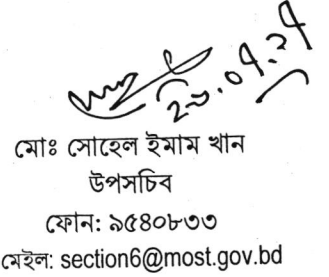 ২০.০৭.২৭
মোঃ সোহেল ইমাম খান
উপসচিব
ফোন: ৯৫৪০৮৩৩
মেইল: section6@most.gov.bd